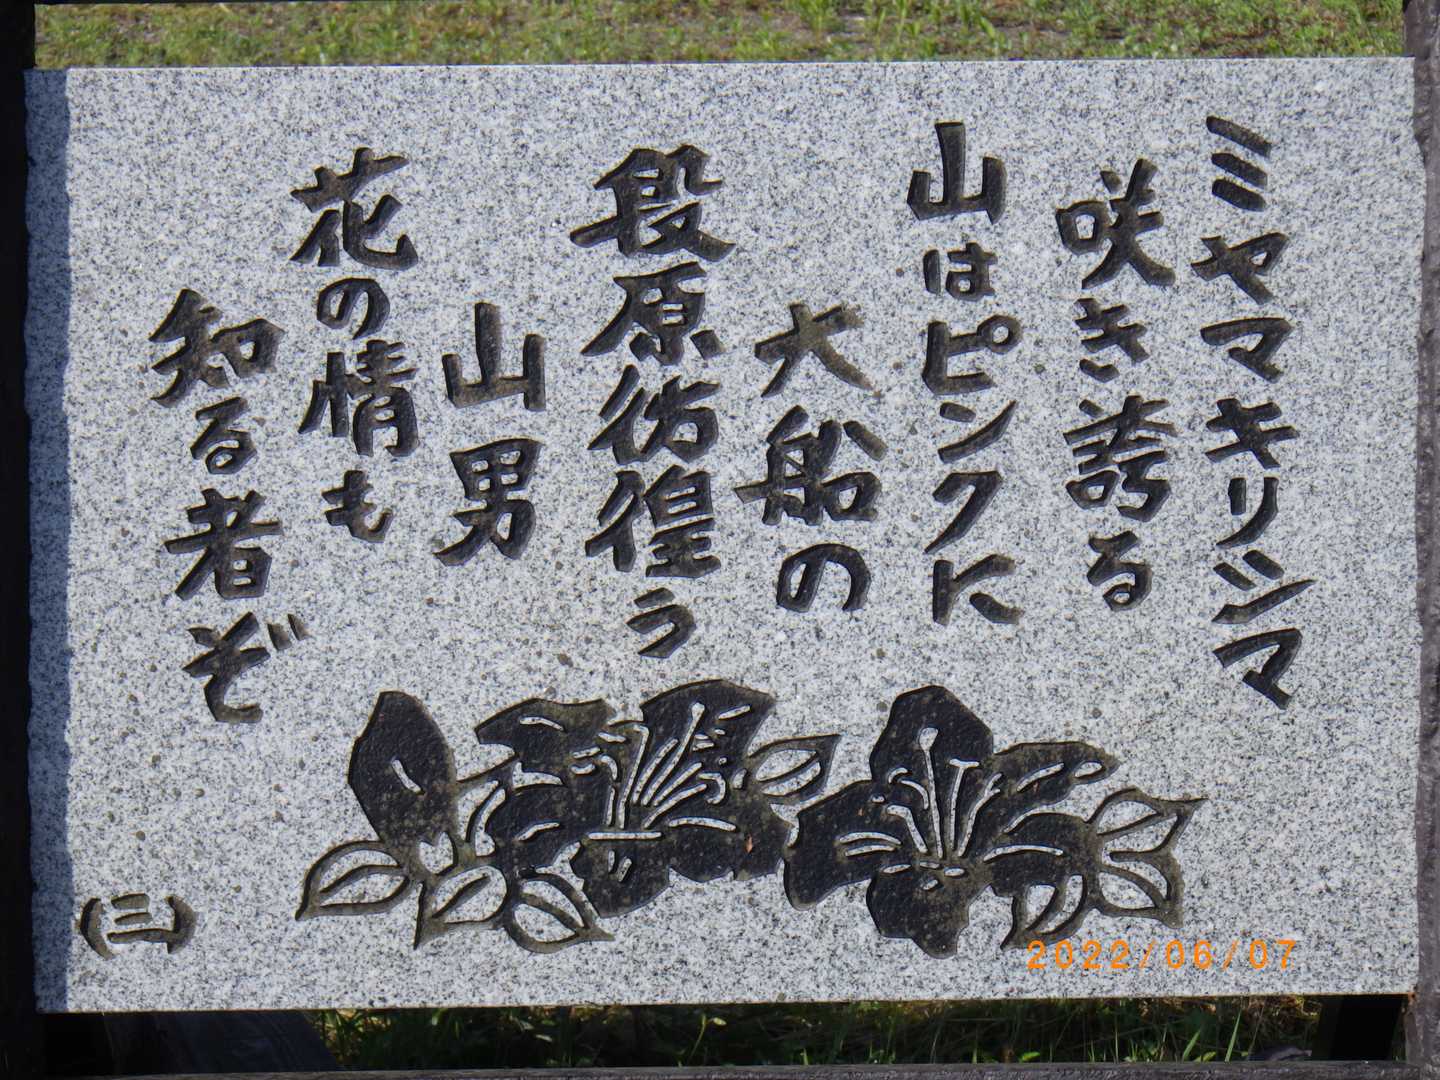 ミヤマキリシマ
咲き誇る
山はピンクに
大船の
段原彷徨う
山男
花の情も
知る者ぞ
(三)
2022/06/07